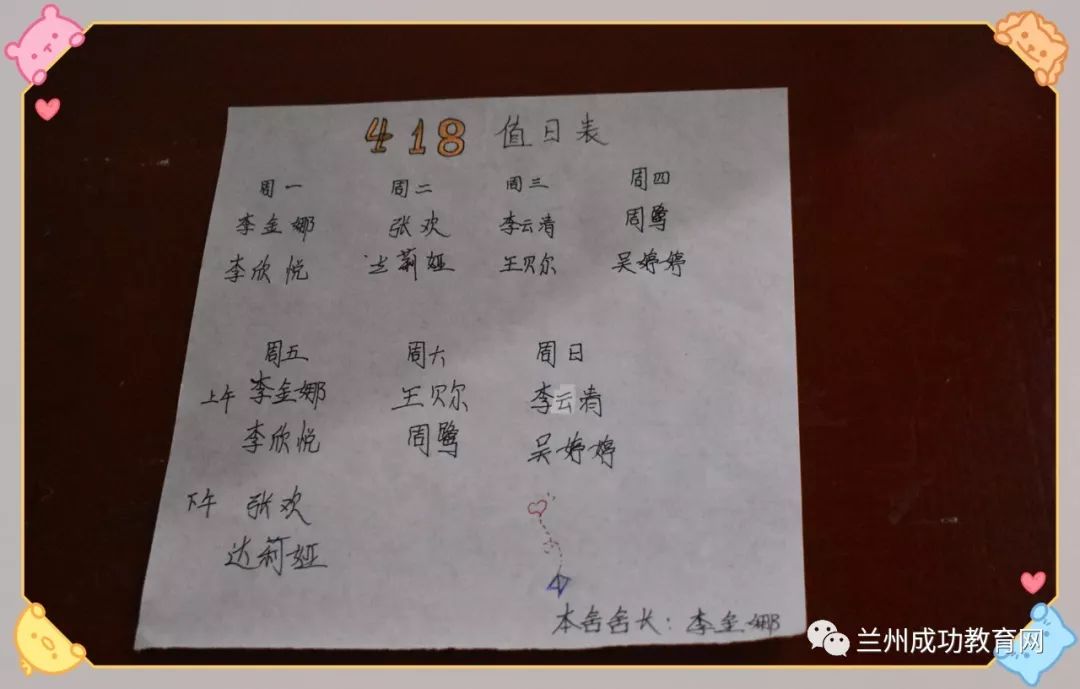 418 值日表
周一 周二 周三 周四
李金娜 张欢 李云清 周鹭
李欣悦 达莉娅 王贝尔 吴婷婷
周五 周六 周日
上午 李金娜 王贝尔 李云清
李欣悦 周鹭 吴婷婷
下午 张欢
达莉娅
本舍舍长：李金娜
兰州成功教育网